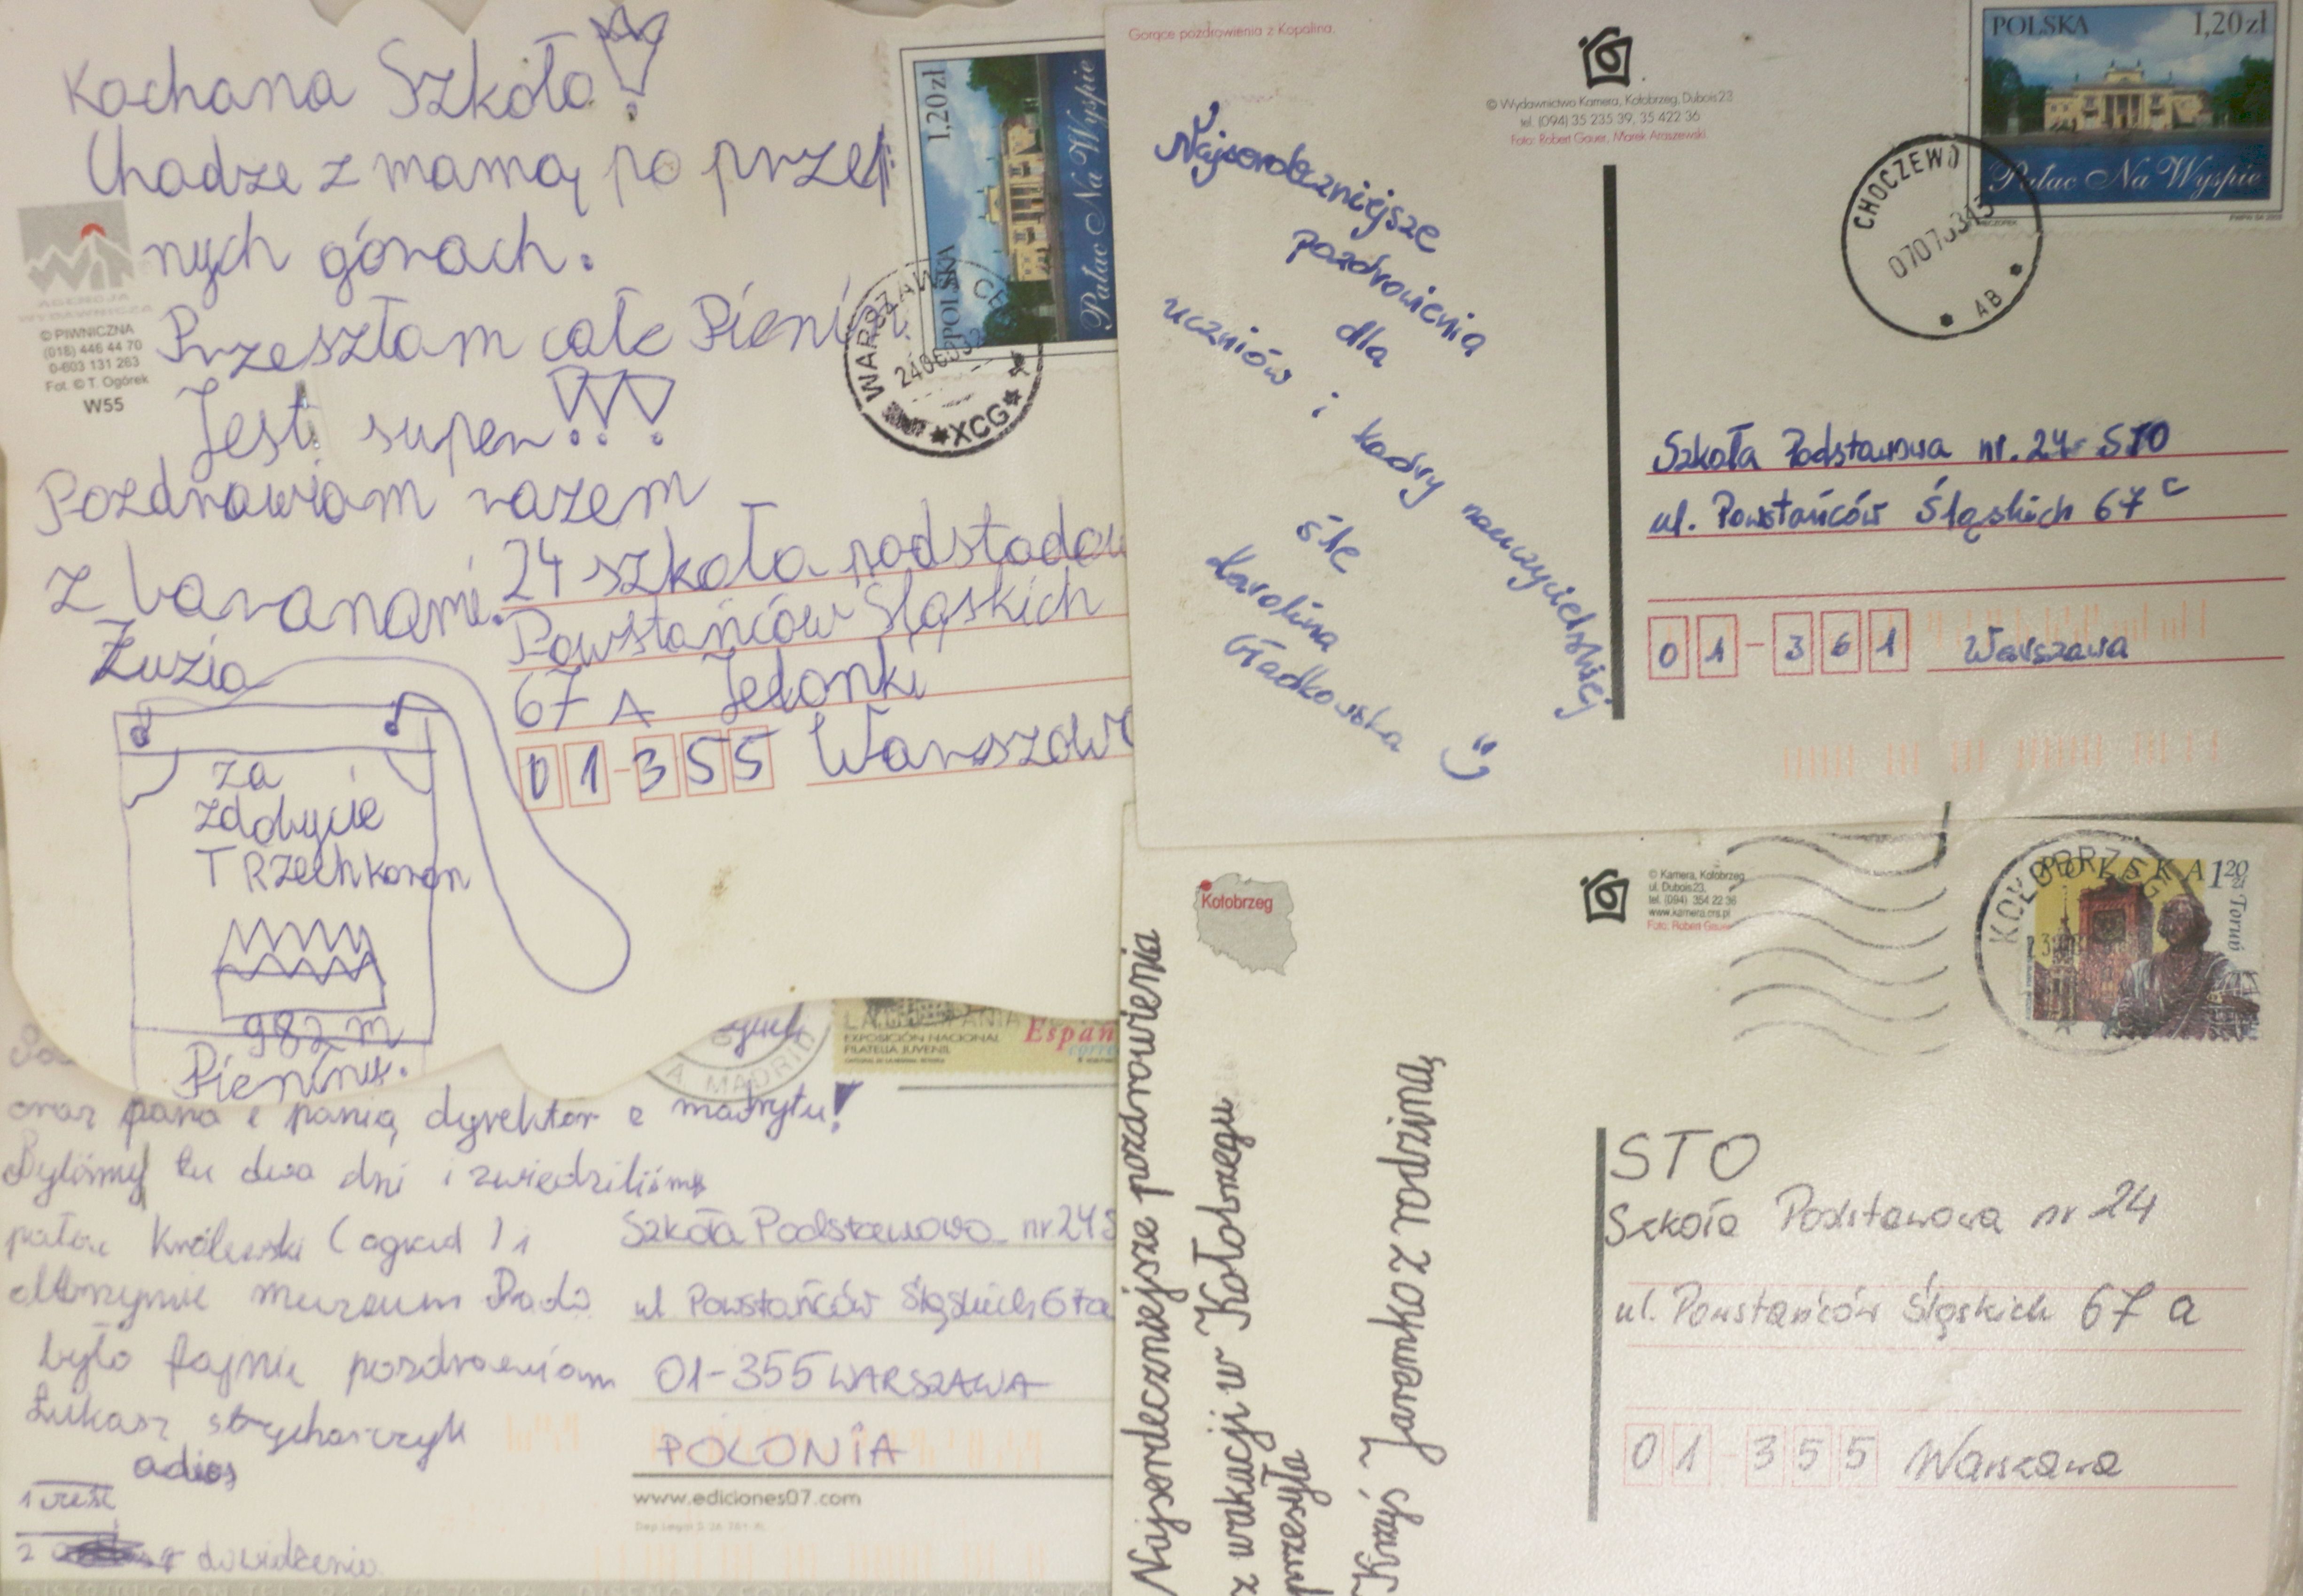 Kochana Szkoło!
Chodze z mamą po przep
nych górach.
Przeszłam całe Pieni
Jest super!!!
Pozdrawiam razem
z baranami.
Zuzia
za
zdobycie
TRzech koron
982 m
Pieniny.
AGENCJA
WYDAWNICZA
© PIWNICZNA
(018) 446 44 70
0-603 131 263
Fot. © T. Ogórek
W55
1,20 zł
POLSKA
Pałac Na Wyspie
WARSZAWA
XCG
24 szkoła podstadow
Powstańców Śląskich
67 A Jelonki
01-355 Warszawa
Gorące pozdrowienia z Kopalina.
© Wydawnictwo Kamera, Kołobrzeg, Dubois 23
tel. (094) 35 235 39, 35 422 36
Foto: Robert Gauer, Marek Araszewski
POLSKA 1,20 zł
Pałac Na Wyspie
CHOCZEWO
AB
Najserdeczniejsze
pozdrowienia
dla
uczniów i kadry nauczycielskiej
śle
Karolina
Gładkowska
Szkoła Podstawowa nr. 24 STO
ul. Powstańców Śląskich 67 c
01-361 Warszawa
oraz pana i panią dyrektor z madrytu!
Byliśmy tu dwa dni i zwiedziliśmy
pałac Królewski (ogród) i
olbrzymie muzeum Prado
było fajnie pozdrawiam
Łukasz strycharczyk
adios
dowidzenia
MADRID
EXPOSICIÓN NACIONAL
FILATELIA JUVENIL
Españ
Szkoła Podstawowa nr 24 S
ul Powstańców Śląskich 67a
01-355 WARSZAWA
POLONIA
www.ediciones07.com
Kołobrzeg
© Kamera, Kołobrzeg
ul. Dubois 23,
tel. (094) 354 22 36
www.kamera.cns.pl
Foto: Robert Gauer
KOŁOBRZEG
POLSKA 1 20 zł
Toruń
Najserdeczniejsze pozdrowienia
z wakacji w Kołobrzegu
przesyła
Krzyś Jaremko z rodziną
STO
Szkoła Podstawowa nr 24
ul. Powstańców Śląskich 67 a
01-355 Warszawa